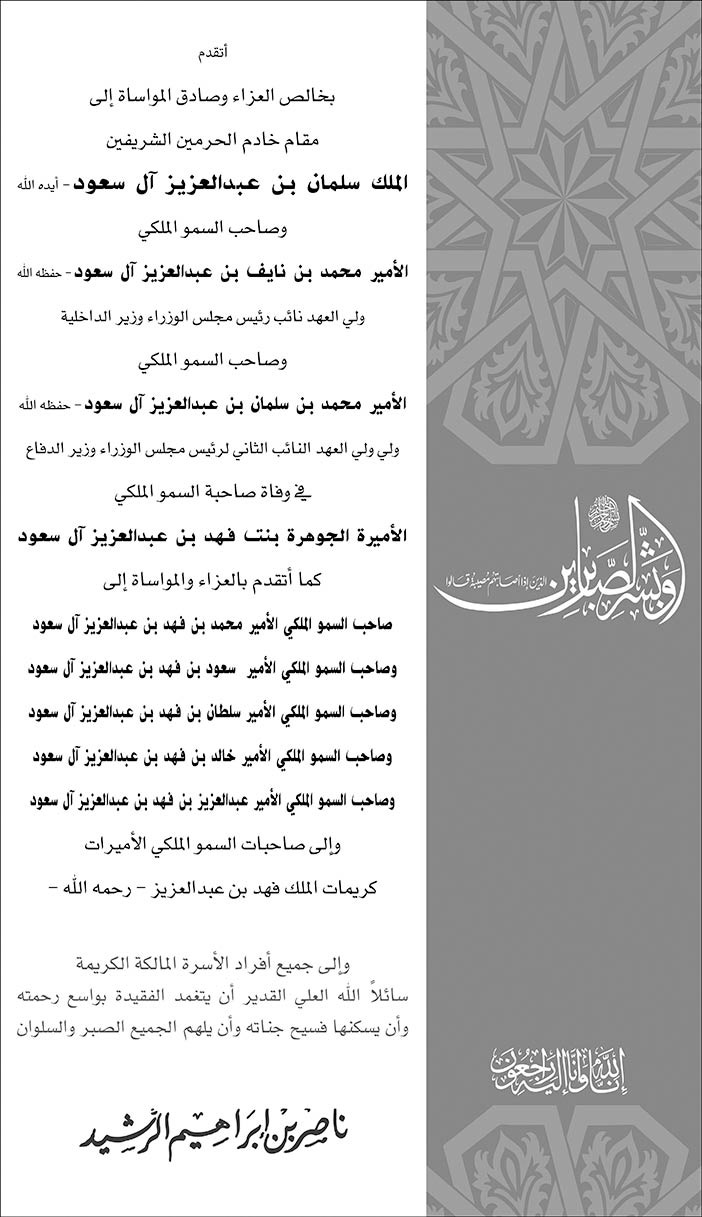 أتقدم
بخالص العزاء وصادق المواساة إلى
مقام خادم الحرمين الشريفين
الملك سلمان بن عبدالعزيز آل سعود - أيده الله
وصاحب السمو الملكي
الأمير محمد بن نايف بن عبدالعزيز آل سعود - حفظه الله
ولي العهد نائب رئيس مجلس الوزراء وزير الداخلية
وصاحب السمو الملكي
الأمير محمد بن سلمان بن عبدالعزيز آل سعود - حفظه الله
ولي ولي العهد النائب الثاني لرئيس مجلس الوزراء وزير الدفاع
في وفاة صاحبة السمو الملكي
الأميرة الجوهرة بنت فهد بن عبدالعزيز آل سعود
كما أتقدم بالعزاء والمواساة إلى
صاحب السمو الملكي الأمير محمد بن فهد بن عبدالعزيز آل سعود
وصاحب السمو الملكي الأمير سعود بن فهد بن عبدالعزيز آل سعود
وصاحب السمو الملكي الأمير سلطان بن فهد بن عبدالعزيز آل سعود
وصاحب السمو الملكي الأمير خالد بن فهد بن عبدالعزيز آل سعود
وصاحب السمو الملكي الأمير عبدالعزيز بن فهد بن عبدالعزيز آل سعود
وإلى صاحبات السمو الملكي الأميرات
كريمات الملك فهد بن عبدالعزيز - رحمه الله -
وإلى جميع أفراد الأسرة المالكة الكريمة
سائلاً الله العلي القدير أن يتغمد الفقيدة بواسع رحمته
وأن يسكنها فسيح جناته وأن يلهم الجميع الصبر والسلوان
ناصر بن إبراهيم الرشيد
بسم الله الرحمن الرحيم
وبشر الصابرين الذين إذا أصابتهم مصيبة قالوا
إنا لله وإنا إليه راجعون